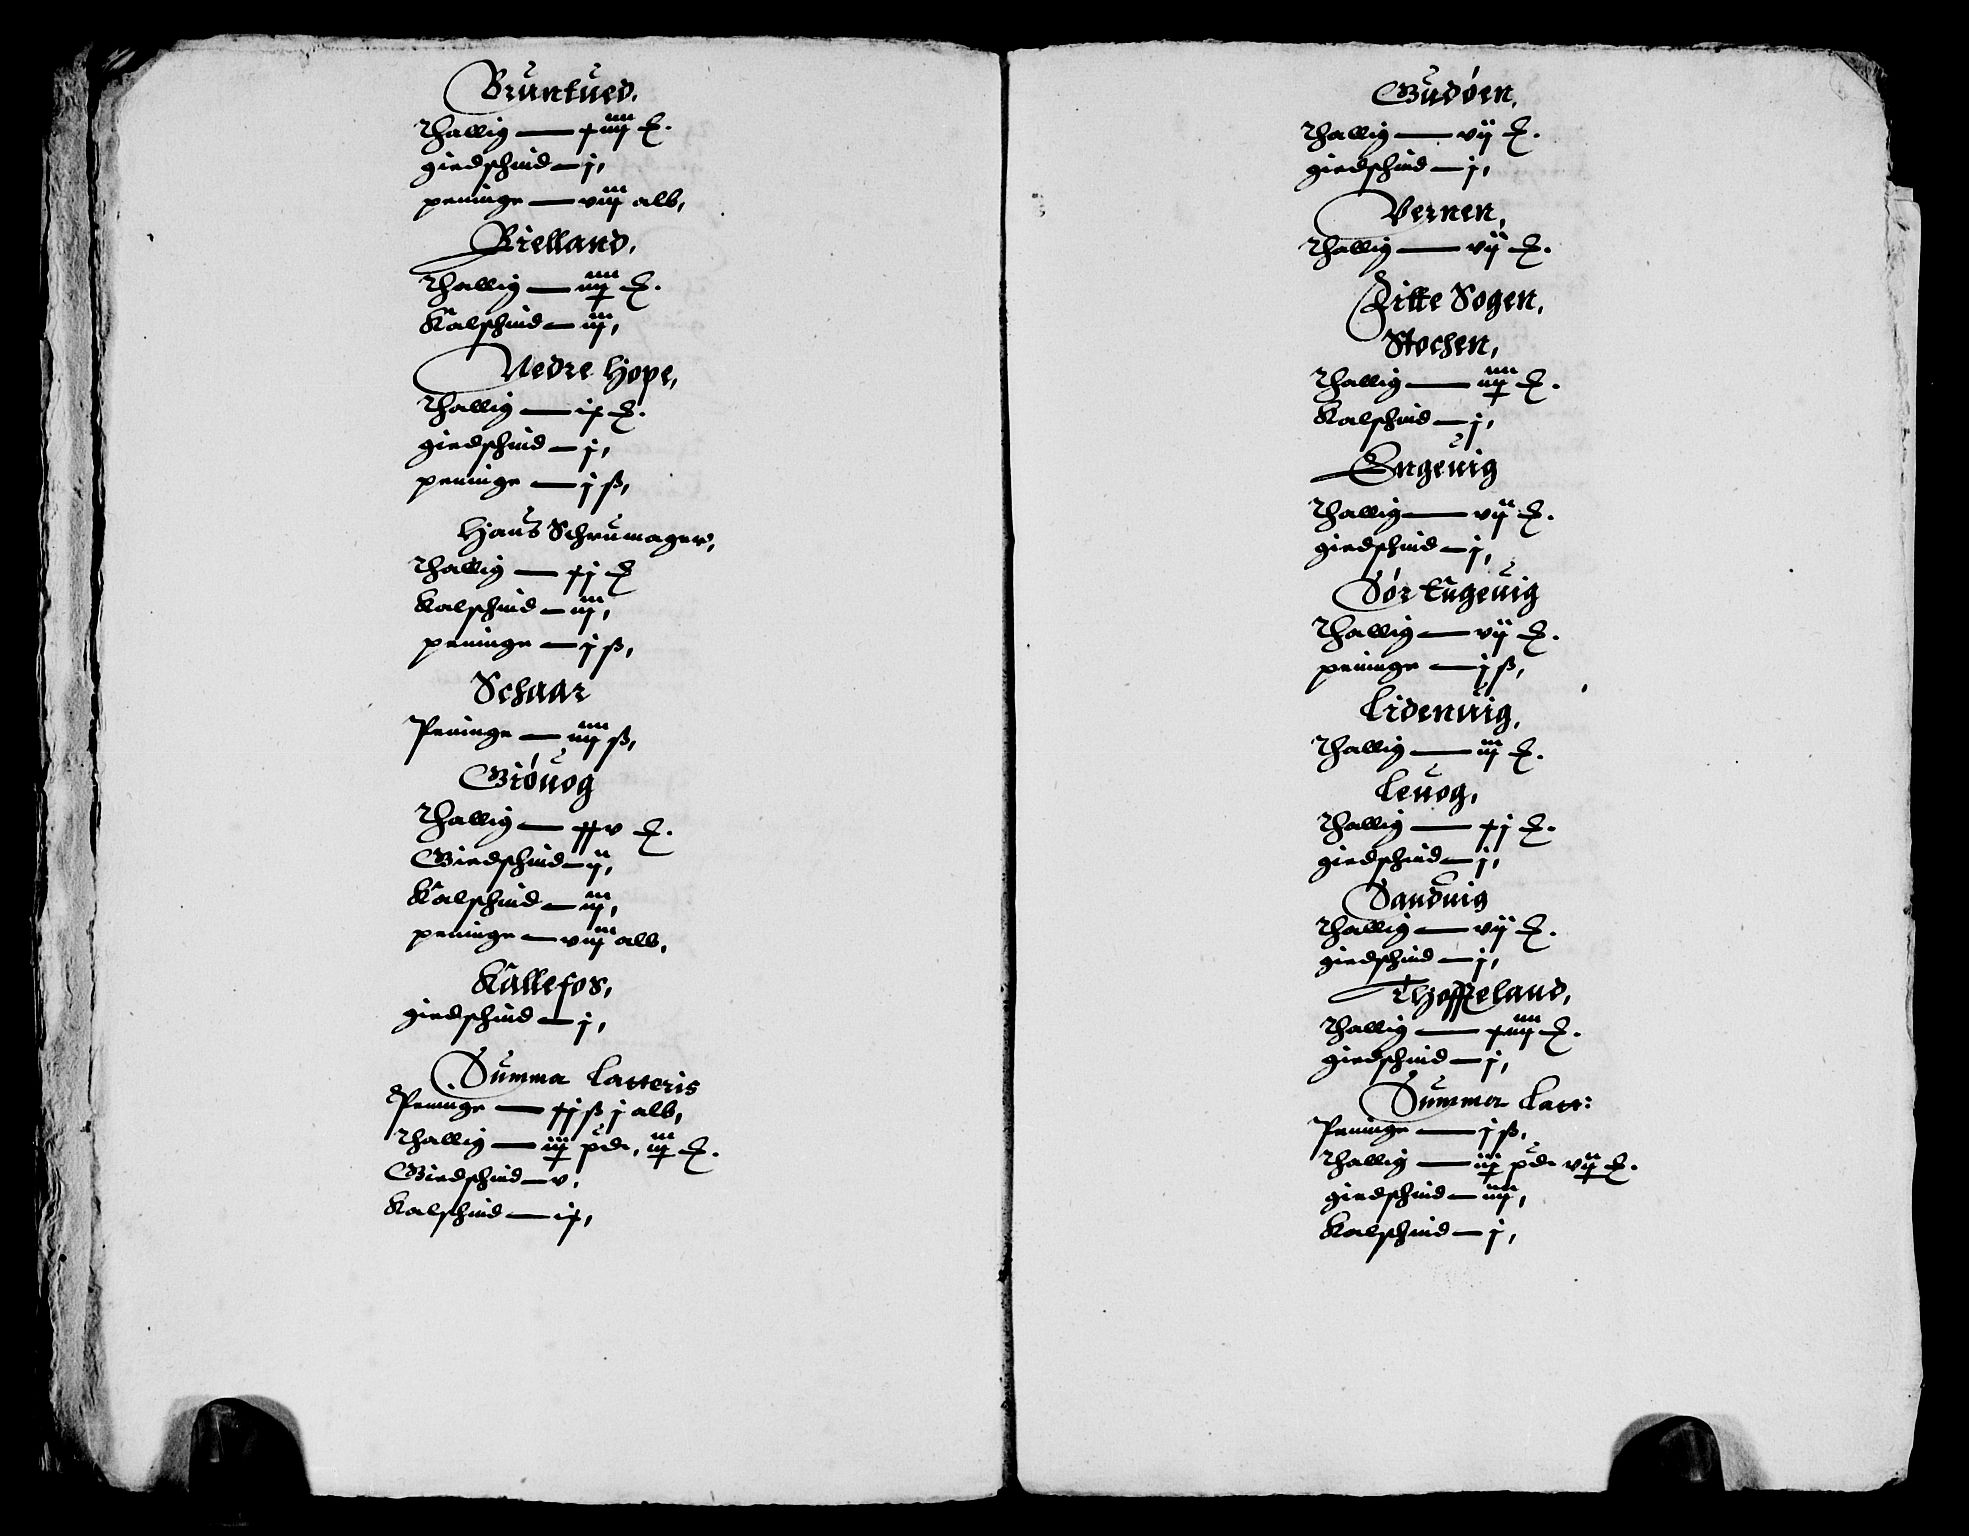 Bruntued.
Thallig — xiiij £.
giedschind — j,
peninge — viij alb,
Bielland,
Thallig — xiiij £.
Kalfschind — iij,
Nedre Hope,
Thallig — ix £.
giedschind — j,
peninge — j ß,
Hans Schrumager,
Thallig — xj £
Kalfschind — iij,
peninge — j ß,
Schaar
Peninge — iiij ß,
Giöuog
Thallig — xxv £.
Giedschind — ij,
Kalfschind — iij,
peninge — viij alb.
Kallefos,
giedschind — j,
Summa Latteris
Peninge — xj ß j alb,
Thallig — iij pd. £.
Giedschind — v.
Kalfschind — ix,
Gudöen,
Thallig — vij £.
giedschind — j,
Vernen,
Thallig — vij £.
Sogen,
Stochen,
Thallig — £.
Kalfschind — j,
Engeuig
Thallig — vij £.
giedschind — j,
Sör Engeuig
Thallig — vij £.
peninge — j ß,
Lidenuig,
Thallig — iij £.
Leuog,
Thallig — xj £.
giedschind — j,
Sanduig
Thallig — vij £.
giedschind — j,
Thoffeland,
Thallig — xiiij £.
giedschind — j,
Summa Latt:
Peninge — j ß,
Thallig — pd £.
giedschind — iiij,
Kalfschind — j,